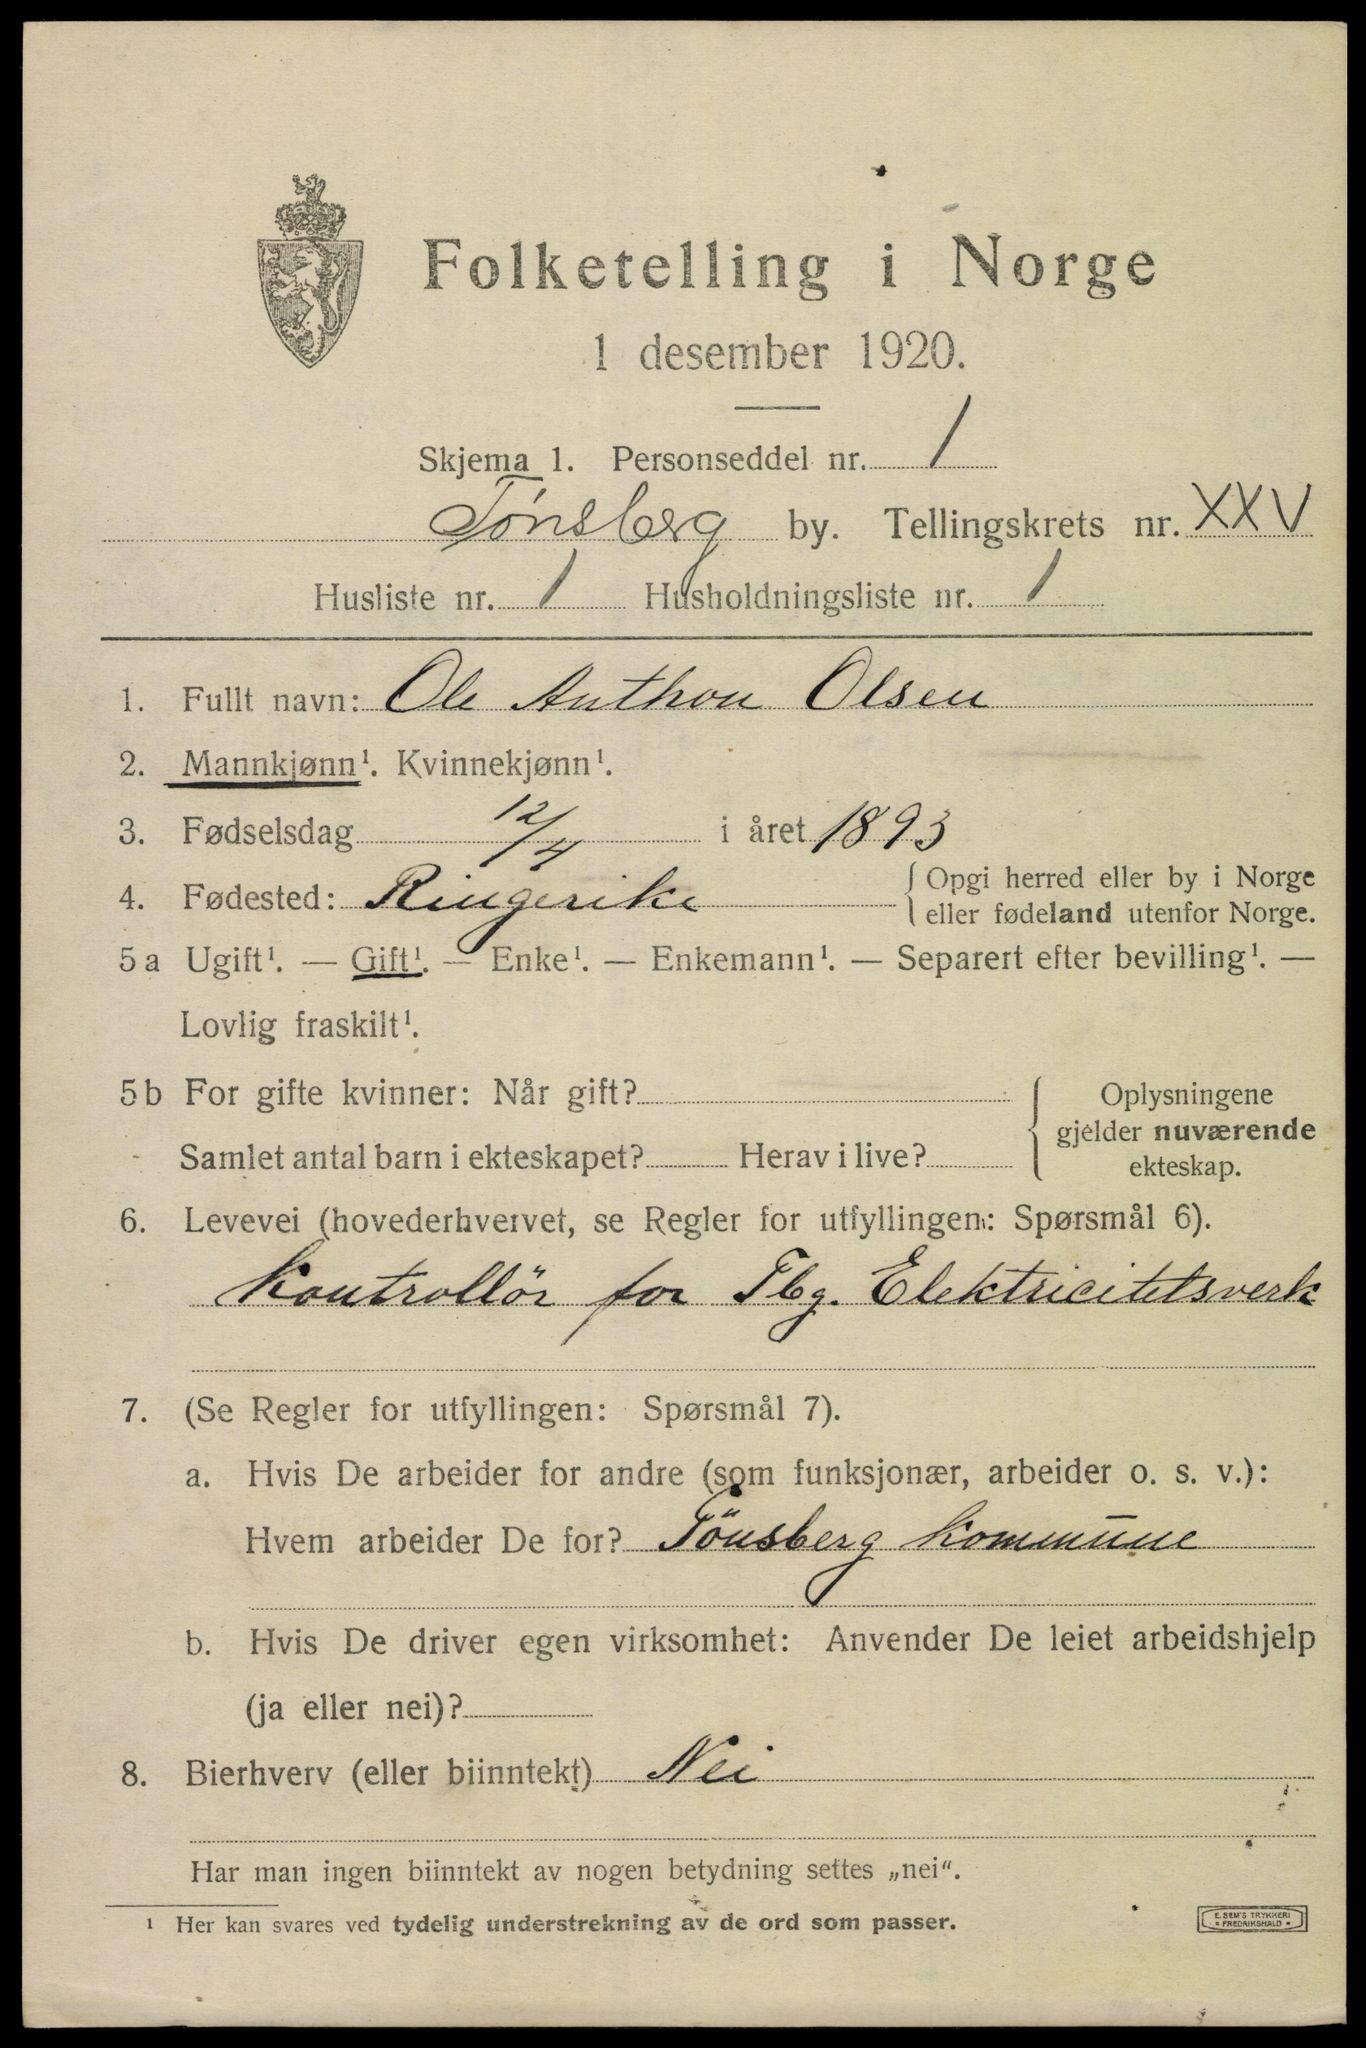 Folketelling i Norge
1 desember 1920.
Skjema 1. Personseddel nr. 1
Tønsberg by. Tellingskrets nr. XXV
Husliste nr. 1 Husholdningsliste nr. 1
1. Fullt navn: Ole Anthon Olsen
2. Mannkjønn¹. Kvinnekjønn¹.
3. Fødselsdag 12/4 i året 1893
4. Fødested: Ringerike { Opgi herred eller by i Norge
eller fødeland utenfor Norge.
5a Ugift¹. — Gift¹. — Enke¹. — Enkemann¹. — Separert efter bevilling¹. —
Lovlig fraskilt¹.
5b For gifte kvinner: Når gift?
Samlet antal barn i ekteskapet? Herav i live?
{ Oplysningene
gjelder nuværende
ekteskap.
6. Levevei (hovederhvervet, se Regler for utfyllingen: Spørsmål 6).
Kontrollör for Tbg. Elektricitetsverk
7. (Se Regler for utfyllingen: Spørsmål 7).
a. Hvis De arbeider for andre (som funksjonær, arbeider o. s. v.):
Hvem arbeider De for? Tönsberg kommune
b. Hvis De driver egen virksomhet: Anvender De leiet arbeidshjelp
(ja eller nei)?
8. Bierhverv (eller biinntekt) Nei
Har man ingen biinntekt av nogen betydning settes „nei“.
¹ Her kan svares ved tydelig understrekning av de ord som passer.
E. SEM'S TRYKKERI
FREDRIKSHALD